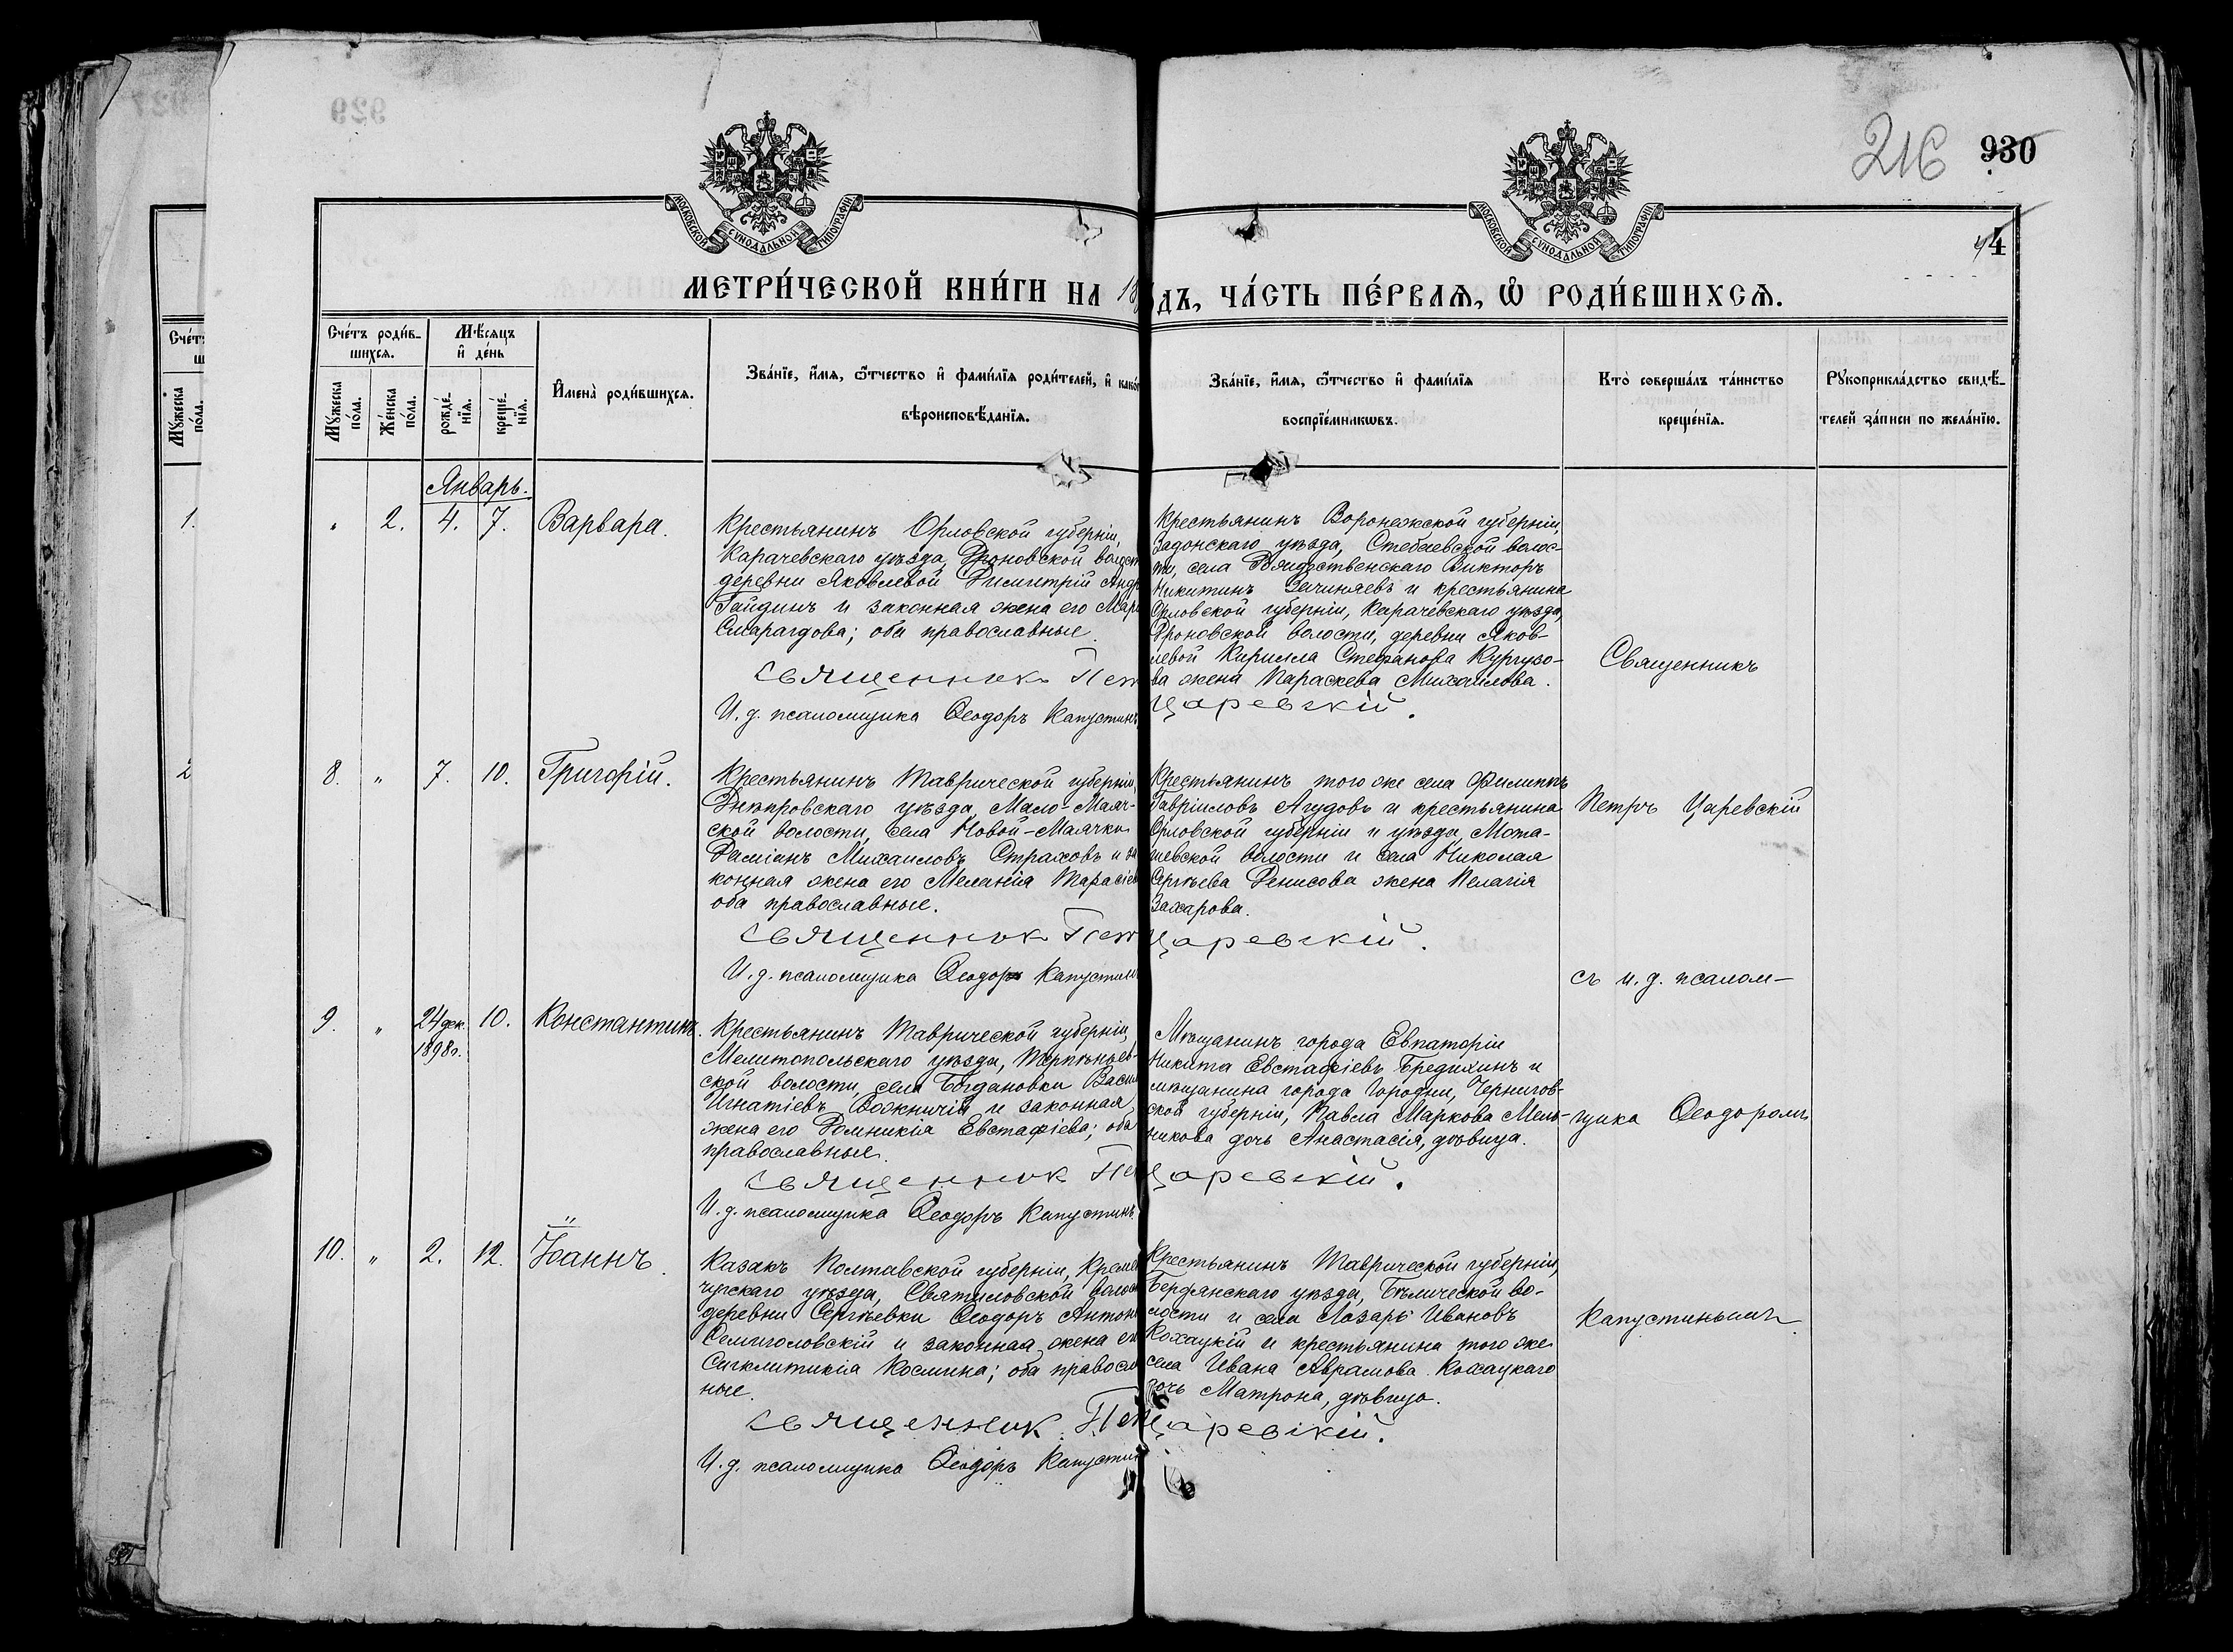 929
216
930
4
МОСКОВСКОЙ СУНОДАЛЬНОЙ ТИПОГРАФІИ
МОСКОВСКОЙ СУНОДАЛЬНОЙ ТИПОГРАФІИ
МЕТРИ́ЧЕСКОЙ КНИ́ГИ НА 18
ДЪ, ЧА́СТЬ ПЕ́РВАѦ, Ѡ РОДИ́ВШИХСѦ.
Сче́тъ роди́в-
шихсѧ.
Мѣ́сѧцъ
и҆ де́нь
Мꙋ́жеска по́ла.
Же́нска по́ла.
рожде́-нїѧ.
креще́-нїѧ.
И҆мена̀ роди́вшихсѧ.
Зва́нїе, и҆́мѧ, ѻ҆́тчество и҆ фами́лїѧ роди́телей, и҆ како́г
вѣроисповѣ́данїѧ.
Зва́нїе, и҆́мѧ, ѻ҆́тчество и҆ фами́лїѧ
воспрїе́мникѡвъ.
Кто̀ соверша́лъ та́инство
креще́нїѧ.
Рꙋкоприкла́дство свидѣ́-
телей за́писи по жела́нїю.
Январь.
" 2. 4. 7. Варвара.
Крестьянинъ Орловской губерніи,
Карачевскаго уѣзда, Дроновской волост
деревни Яковлевой Димитрій Андр
Гайдинъ и законная жена его Мар
Смарагдова; оба православные.
Священник Пет
И. д. псаломщика Ѳеодоръ Капустинъ
Крестьянинъ Воронежской губерніи,
Задонскаго уѣзда, Стебаевской волос-
ти, села Рождественскаго Викторъ
Никитинъ и крестьянина
Орловской губерніи, Карачевскаго уѣзда,
Дроновской волости, деревни Яков-
левой Кирилла Стефанова Кургузо-
ва жена Параскева Михаилова.
Царевскій.
Священникъ
8. " 7. 10. Григорій.
Крестьянинъ Таврической губерніи,
Днѣпровскаго уѣзда, Мало-Маяч-
ской волости, села Новой-Маячки
Даміанъ Михаиловъ Страховъ и за
конная жена его Меланія Тарасіев
оба православные.
Священник Пет
И. д. псаломщика Ѳеодоръ Капустин
Крестьянинъ того же села Филиппъ
Гавріиловъ Агудовъ и крестьянина
Орловской губерніи и уѣзда, Мота-
евской волости и села Николая
Сергѣева Денисова жена Пелагія
Захарова.
Царевскій.
Петръ Царевскій
съ и. д. псалом-
9. " 24 дек. 10. Константинъ.
1898 г.
Крестьянинъ Таврической губерніи,
Мелитопольскаго уѣзда, Терпѣньев-
ской волости, села Богдановки Васил
Игнатіевъ и законная
жена его Домникія Евстафіева; оба
православные.
Священник Пе
И. д. псаломщика Ѳеодоръ Капустинъ
Мѣщанинъ города Евпаторіи
Никита Евстафіевъ Бредихинъ и
мѣщанина города Городни, Чернигов-
ской губерніи, Павла Маркова Мель-
никова дочь Анастасія, дѣвица.
Царевскій.
щика Ѳеодоромъ
10. " 2. 12. Іоаннъ.
Казакъ Полтавской губерніи, Кремен
чугскаго уѣзда, Святиловской волос
деревни Сергѣевки Ѳеодоръ Антон
Семиголовскій и законная жена ег
Сигклитикіа Космина; оба правосла
ные.
Священник Пет
И. д. псаломщика Ѳеодоръ Капустин
Крестьянинъ Таврической губерніи,
Бердянскаго уѣзда, во-
лости и села Лазарь Ивановъ
Кохацкій и крестьянина того же
села Ивана Аврамова Кохацкаго
дочь Матрона, дѣвица.
Царевскій.
Капустинымъ.